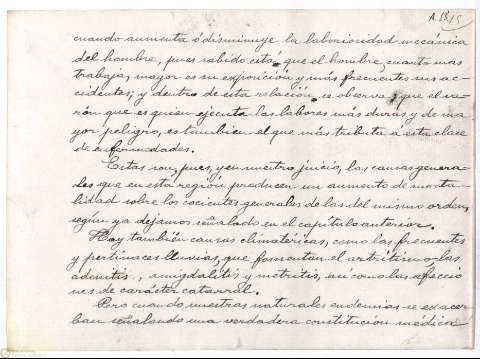 A 1815
cuando aumenta ó disminuye la laboriosidad mecánica
del hombre, pues sabido está que el hombre, cuanto mas
trabaja, mayor es su exposición y más frecuentes sus ac-
cidentes; y dentro de esta relación se observa que el va-
rón que es quien ejecuta las labores más duras y de ma-
yor peligro, es tambien el que más tributa á esta clase
de enfermedades.
Estas son, pues, y en nuestro juicio, las causas genera-
les que en esta región producen un aumento de morta-
lidad sobre los cocientes generales de las del mismo orden,
según ya dejamos señalado en el capítulo anterior.
Hay también causas climatéricas, como las frecuentes
y pertinaces lluvias, que fomentan el artritismo, las
adenitis, amigdalitis y metritis, así como las afeccio-
nes de carácter catarral.
Pero cuando nuestras naturales endemias se exacer-
ban señalando una verdadera constitución médica